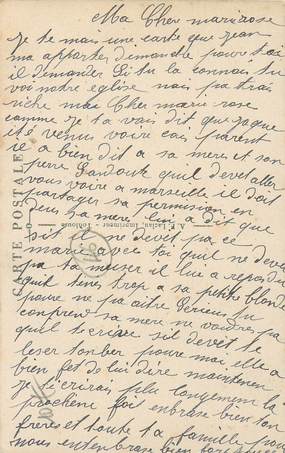 Ma Cher marierose
je te mais une carte que jean
ma apporter demandre pour toi
il demander si tu la connais tu
voi notre eglise nais pa trais
riche mai Cher marie rose
comme je ta vais dit que jaque
ité venus voire cais parent
il a bien dit a sa mere et son
perre quil devet aller
vous voire a marseille il doit
partager sa permission en
deux sa mere lui a dit que
sil ne devet pa ce
marie avec toi quil ne devet
pa ta muser il lui a repondu
quil tenes trop a sa petite blonde
poure ne pa aitre serieux tu
conpren sa mere ne voudrez pa
quil te crive sil devet te
leser tonber poure moi elle a
bien fet de lui dire maintenen
je técrirais plu longement la
prochene foi enbrase bien ton
freres et toute ta famille pour
nous enten brase bien
CARTE POSTALE
Imprimeur - Toulouse